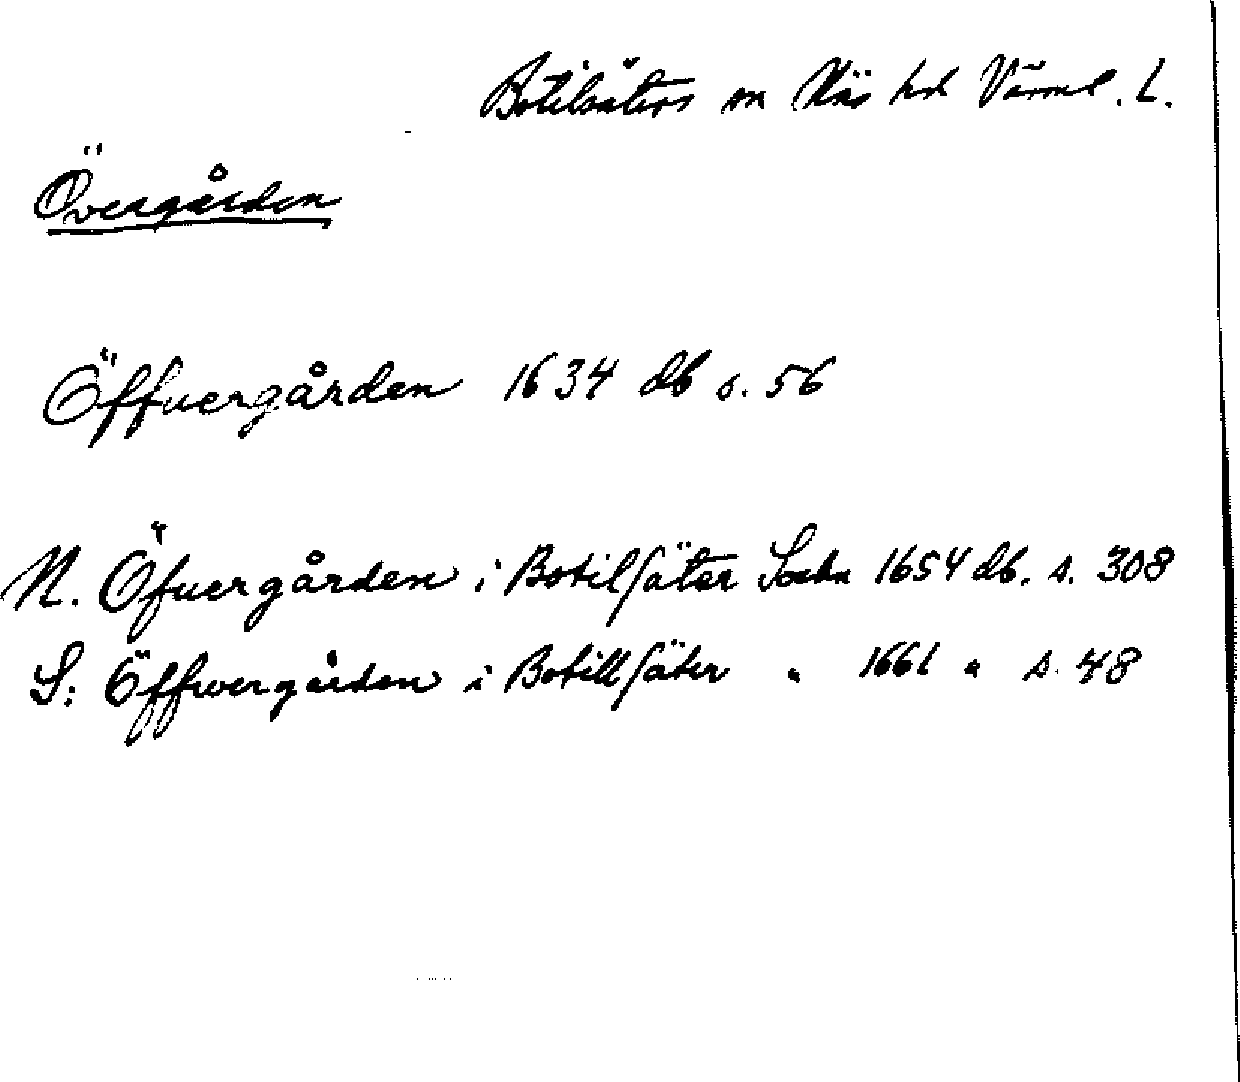 Botilsäters sn Näs hd Värml. L.
Övergården
Öffuergården 1634 db s. 56
N. Öfuergården i Botilsäter Sochn 1654 db. s. 308
S: Öffwergården i Botillsäter " 1661 " s. 48